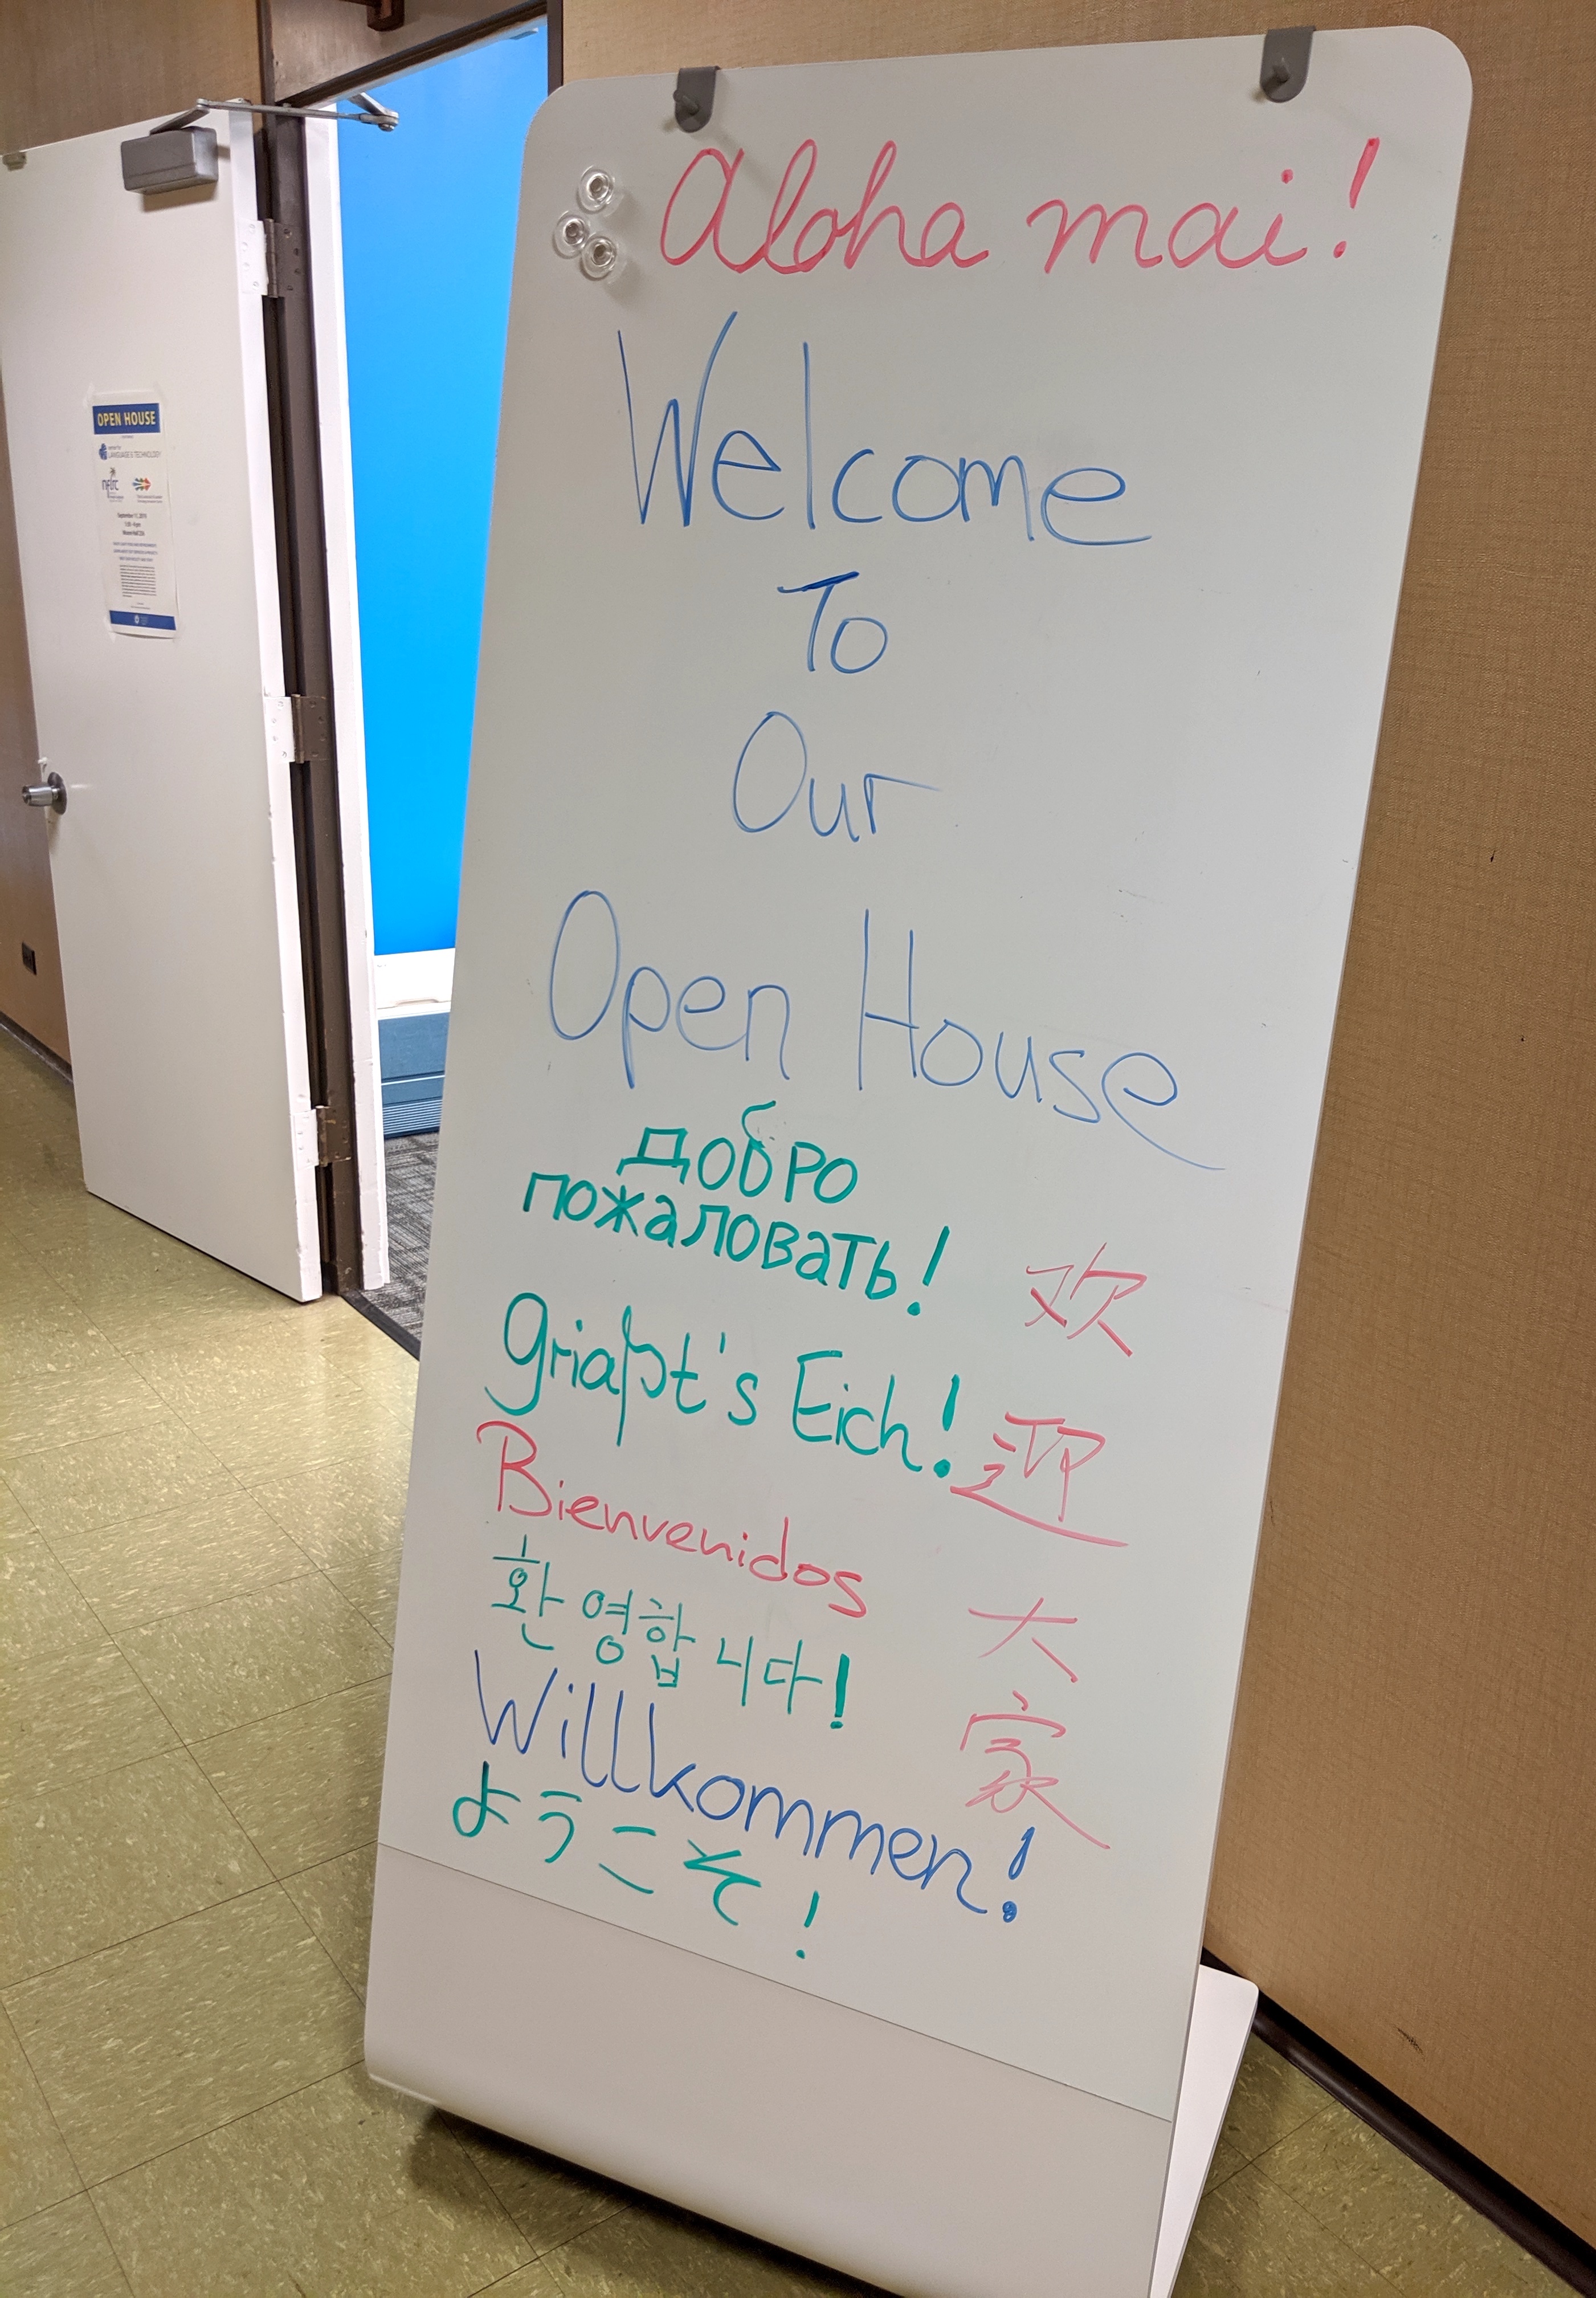 Aloha mai!
Welcome
To
Our
Open House
добро
пожаловать!
Griaßt's Eich!
Bienvenidos
환영합니다!
Willkommen!
ようこそ!
欢
迎
大
家
OPEN HOUSE
LANGUAGE & TECHNOLOGY
nflrc